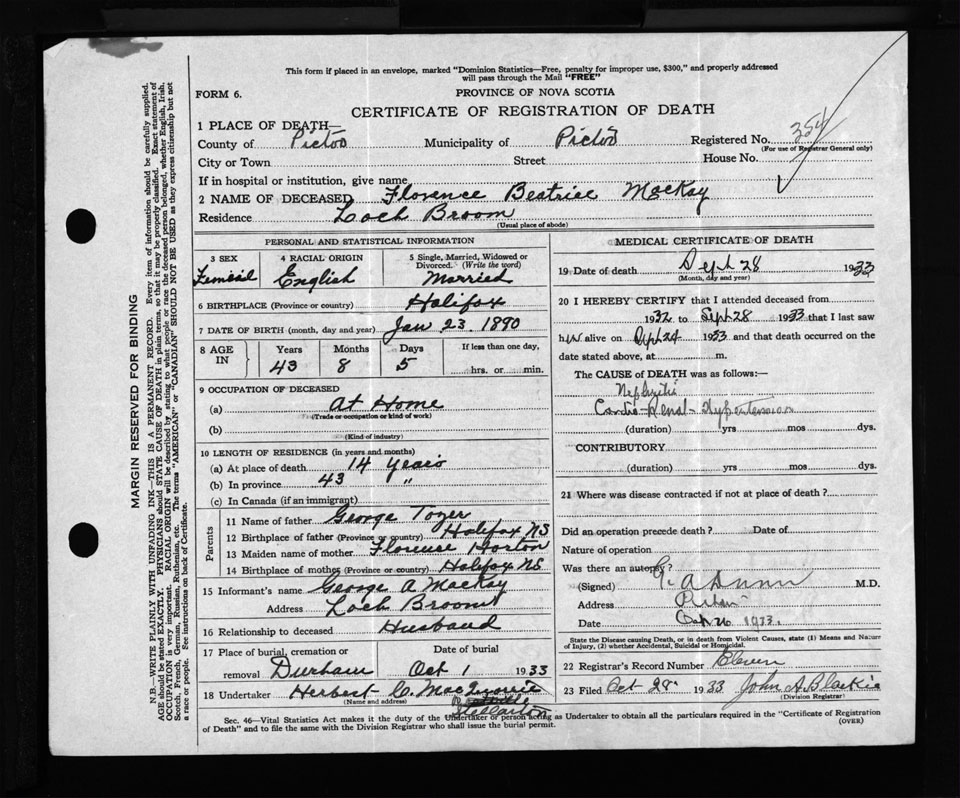 This form if placed in an envelope, marked "Dominion Statistics—Free, penalty for improper use, $300," and properly addressed
will pass through the Mail "FREE"
FORM 6.
PROVINCE OF NOVA SCOTIA
CERTIFICATE OF REGISTRATION OF DEATH
1 PLACE OF DEATH—
County of Pictou Municipality of Pictou Registered No. 354
(For use of Registrar General only)
City or Town Street House No.
If in hospital or institution, give name
2 NAME OF DECEASED Florence Beatrice MacKay
Residence Loch Broom
(Usual place of abode)
PERSONAL AND STATISTICAL INFORMATION
3 SEX 4 RACIAL ORIGIN 5 Single, Married, Widowed or
Divorced. (Write the word)
Female English Married
6 BIRTHPLACE (Province or country) Halifax
7 DATE OF BIRTH (month, day and year) Jan 23. 1890
8 AGE IN Years Months Days If less than one day,
43 8 5 hrs. or min.
9 OCCUPATION OF DECEASED
(a) At Home
(Trade or occupation or kind of work)
(b)
(Kind of industry)
10 LENGTH OF RESIDENCE (in years and months)
(a) At place of death 14 years
(b) In province 43 "
(c) In Canada (if an immigrant)
Parents
11 Name of father George Tozer
12 Birthplace of father (Province or country) Halifax NS
13 Maiden name of mother Florence Horton
14 Birthplace of mother (Province or country) Halifax NS
15 Informant's name George A MacKay
Address Loch Broom
16 Relationship to deceased Husband
17 Place of burial, cremation or Date of burial
removal Durham Oct 1 1933
18 Undertaker Herbert C. MacQuarrie
(Name and address) Stellarton
MEDICAL CERTIFICATE OF DEATH
19 Date of death Sept 28 1933
(Month, day and year)
20 I HEREBY CERTIFY that I attended deceased from
1932 to Sept 28 1933 that I last saw
her alive on Sept 24 1933 and that death occurred on the
date stated above, at m.
The CAUSE of DEATH was as follows:—
Nephritis
Cardio-Renal-Hypertension
(duration) yrs mos dys.
CONTRIBUTORY
(duration) yrs mos dys.
21 Where was disease contracted if not at place of death?
Did an operation precede death? Date of
Nature of operation
Was there an autopsy?
(Signed) A Dunn M.D.
Address
Date 1933.
State the Disease causing Death, or in death from Violent Causes, state (1) Means and Nature
of Injury, (2) whether Accidental, Suicidal or Homicidal.
22 Registrar's Record Number Eleven
23 Filed Oct 28" 1933 John A. Blackie
(Division Registrar)
Sec. 46—Vital Statistics Act makes it the duty of the Undertaker or person acting as Undertaker to obtain all the particulars required in the "Certificate of Registration
of Death" and to file the same with the Division Registrar who shall issue the burial permit.
(OVER)
MARGIN RESERVED FOR BINDING
N.B.—WRITE PLAINLY WITH UNFADING INK—THIS IS A PERMANENT RECORD. Every item of information should be carefully supplied.
AGE should be stated EXACTLY. PHYSICIANS should STATE CAUSE OF DEATH in plain terms, so that it may be properly classified. Exact statement of
OCCUPATION is very important. RACIAL ORIGIN will be described by stating to what people or race the deceased person belonged, whether English, Irish,
Scotch, French, German, Russian, Ruthenian, etc. The terms "AMERICAN" or "CANADIAN" SHOULD NOT BE USED as they express citizenship but not
a race or people. See instructions on back of Certificate.